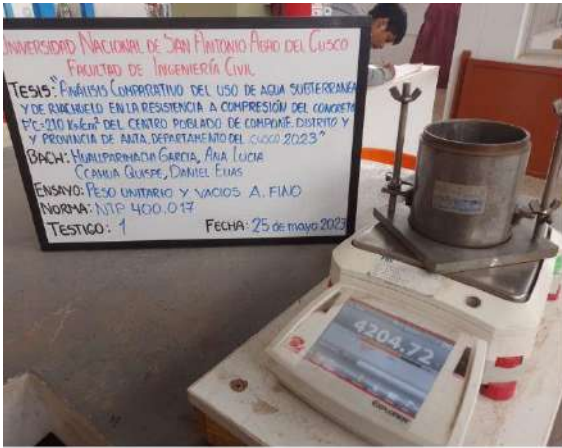 UNIVERSIDAD NACIONAL DE SAN ANTONIO ABAD DEL CUSCO
FACULTAD DE INGENIERÍA CIVIL
TESIS: "ANÁLISIS COMPARATIVO DEL USO DE AGUA SUBTERRANEA
Y DE RIACHUELO EN LA RESISTENCIA A COMPRESIÓN DEL CONCRETO
F'C=210 Kg/cm² DEL CENTRO POBLADO DE COMPONE, DISTRITO Y
Y PROVINCIA DE ANTA, DEPARTAMENTO DEL CUSCO 2023"
BACH: HUALLPARIMACHI GARCIA, ANA LUCIA
CCAHUA QUISPE, DANIEL ELIAS
ENSAYO: PESO UNITARIO Y VACIOS A. FINO
NORMA: NTP 400.017
TESTIGO: 1 FECHA: 25 de mayo 2023
4204.72